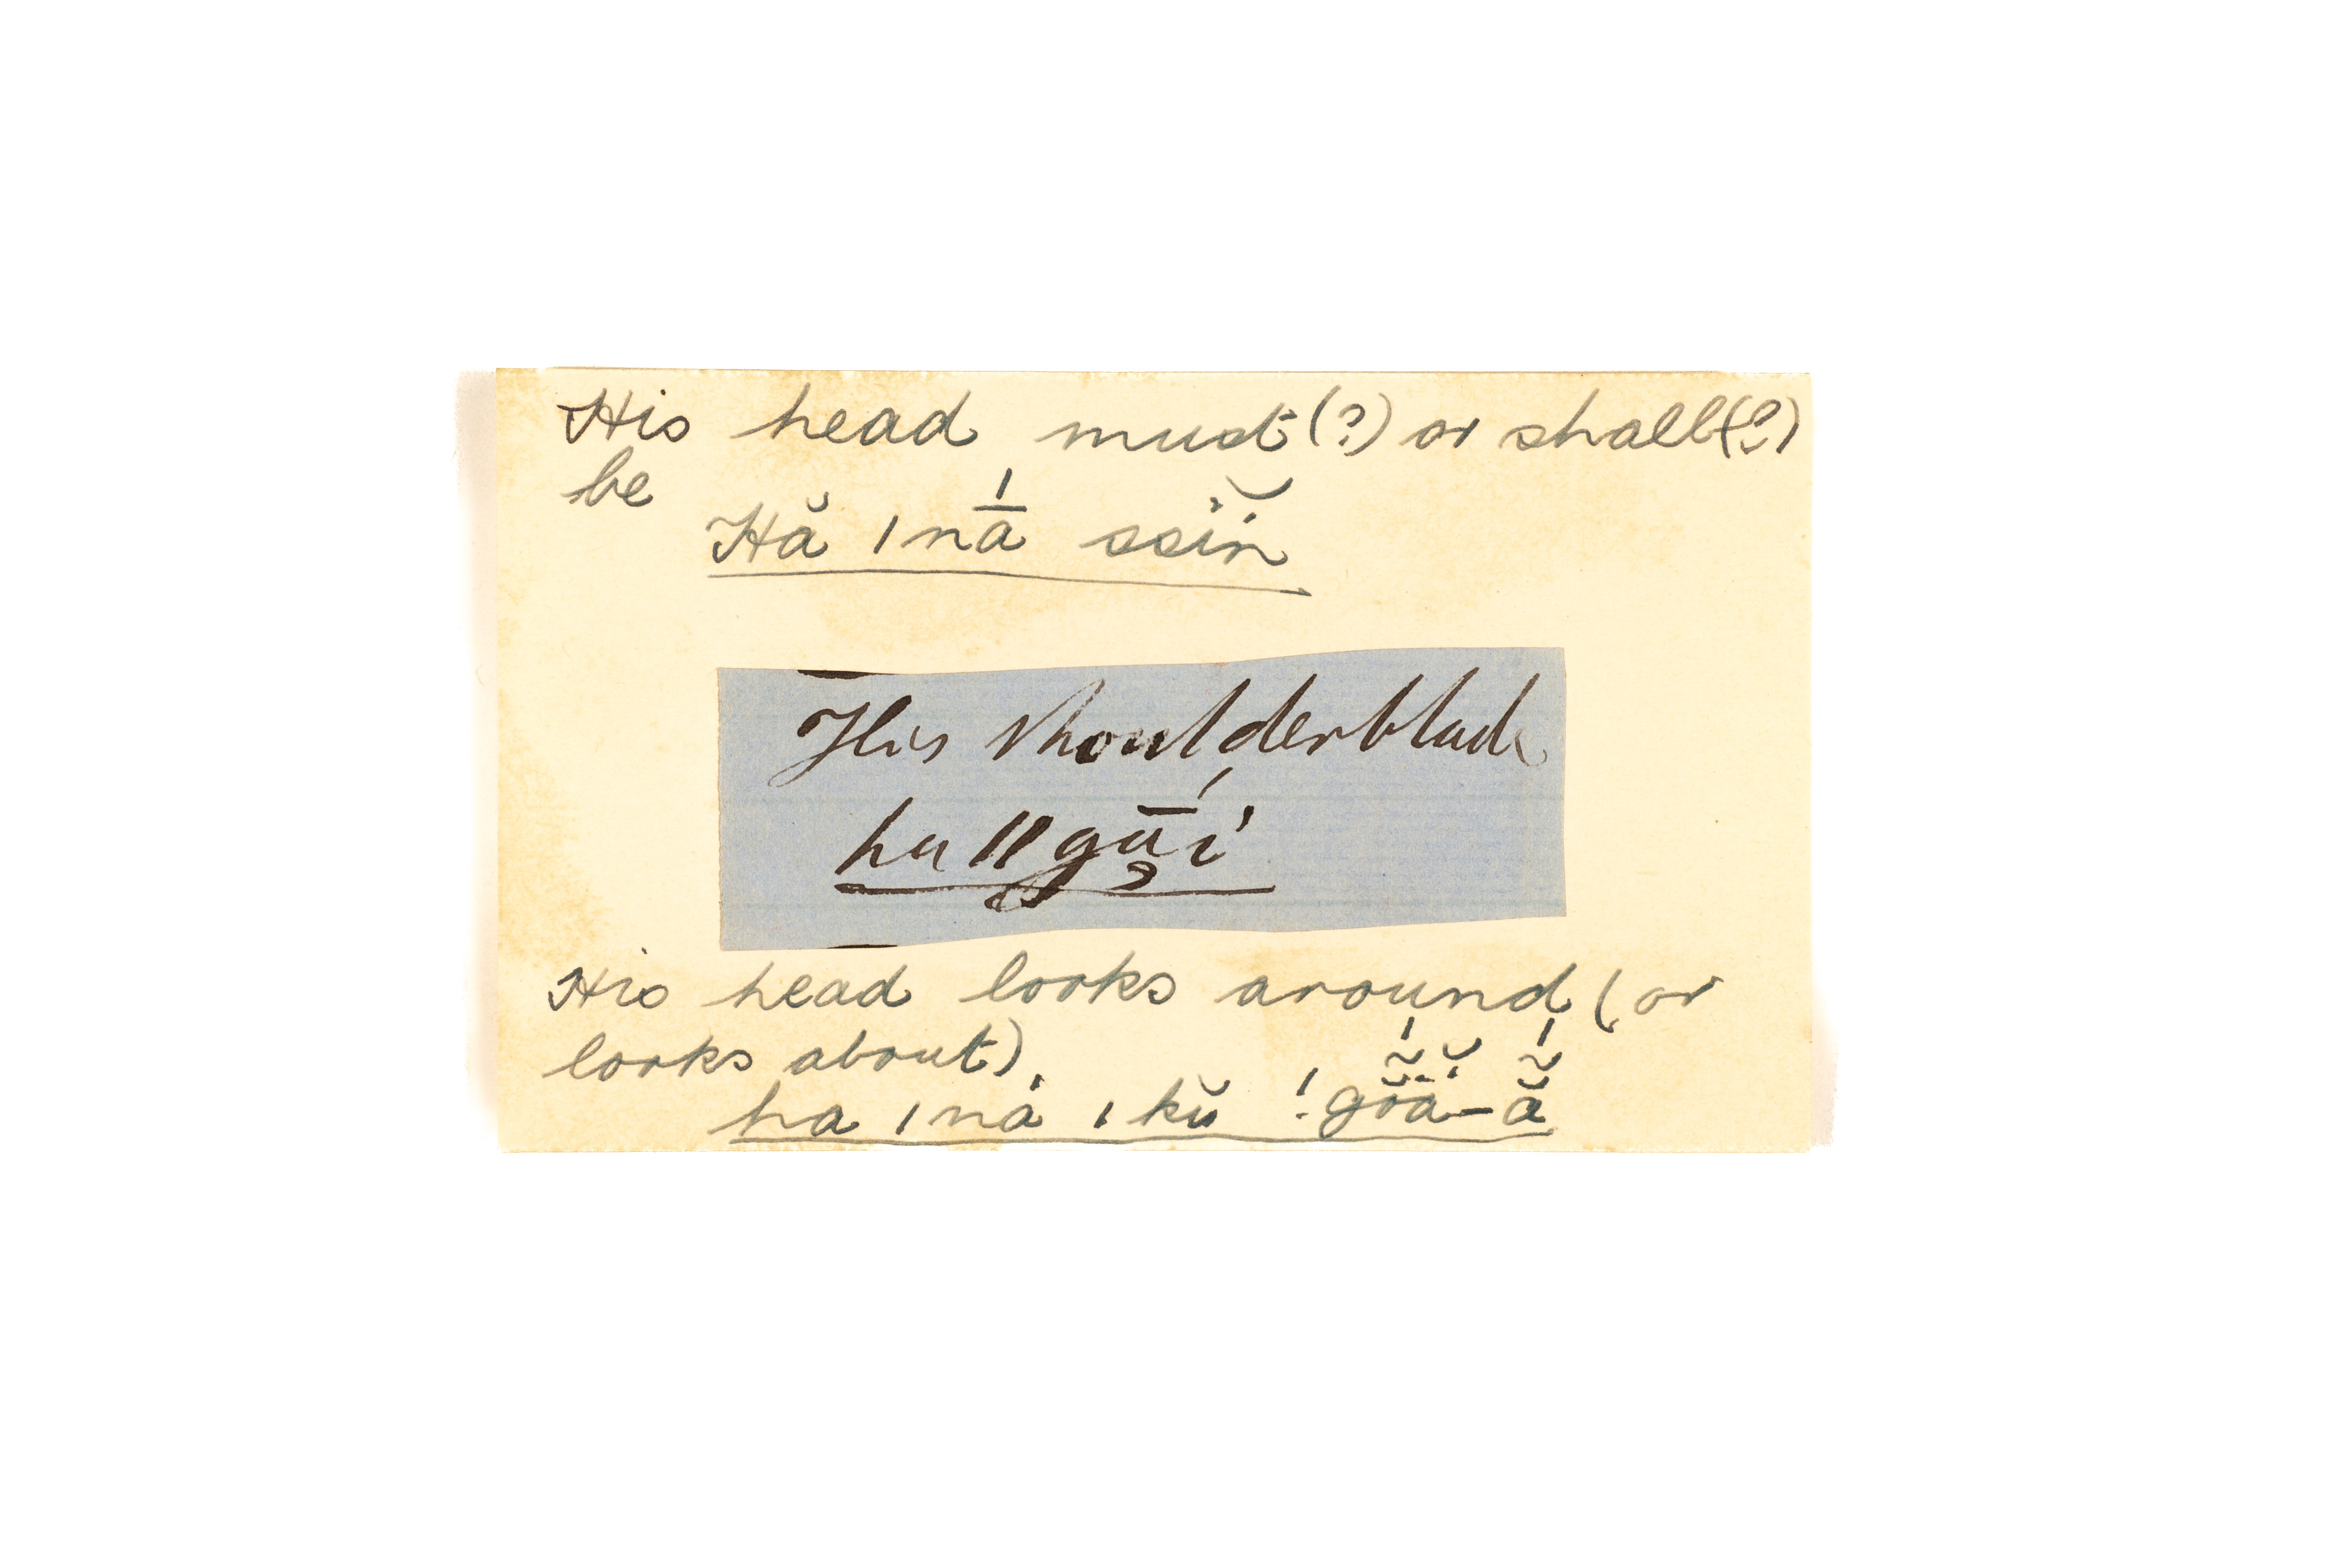 His head must (?) or shall (?)
be
Hă ǀnā́ ssĭn
His shoulderblade
ha ǁgā́i
His head looks around (or
looks about).
ha ǀná ǀkŭ !gõă-ã́